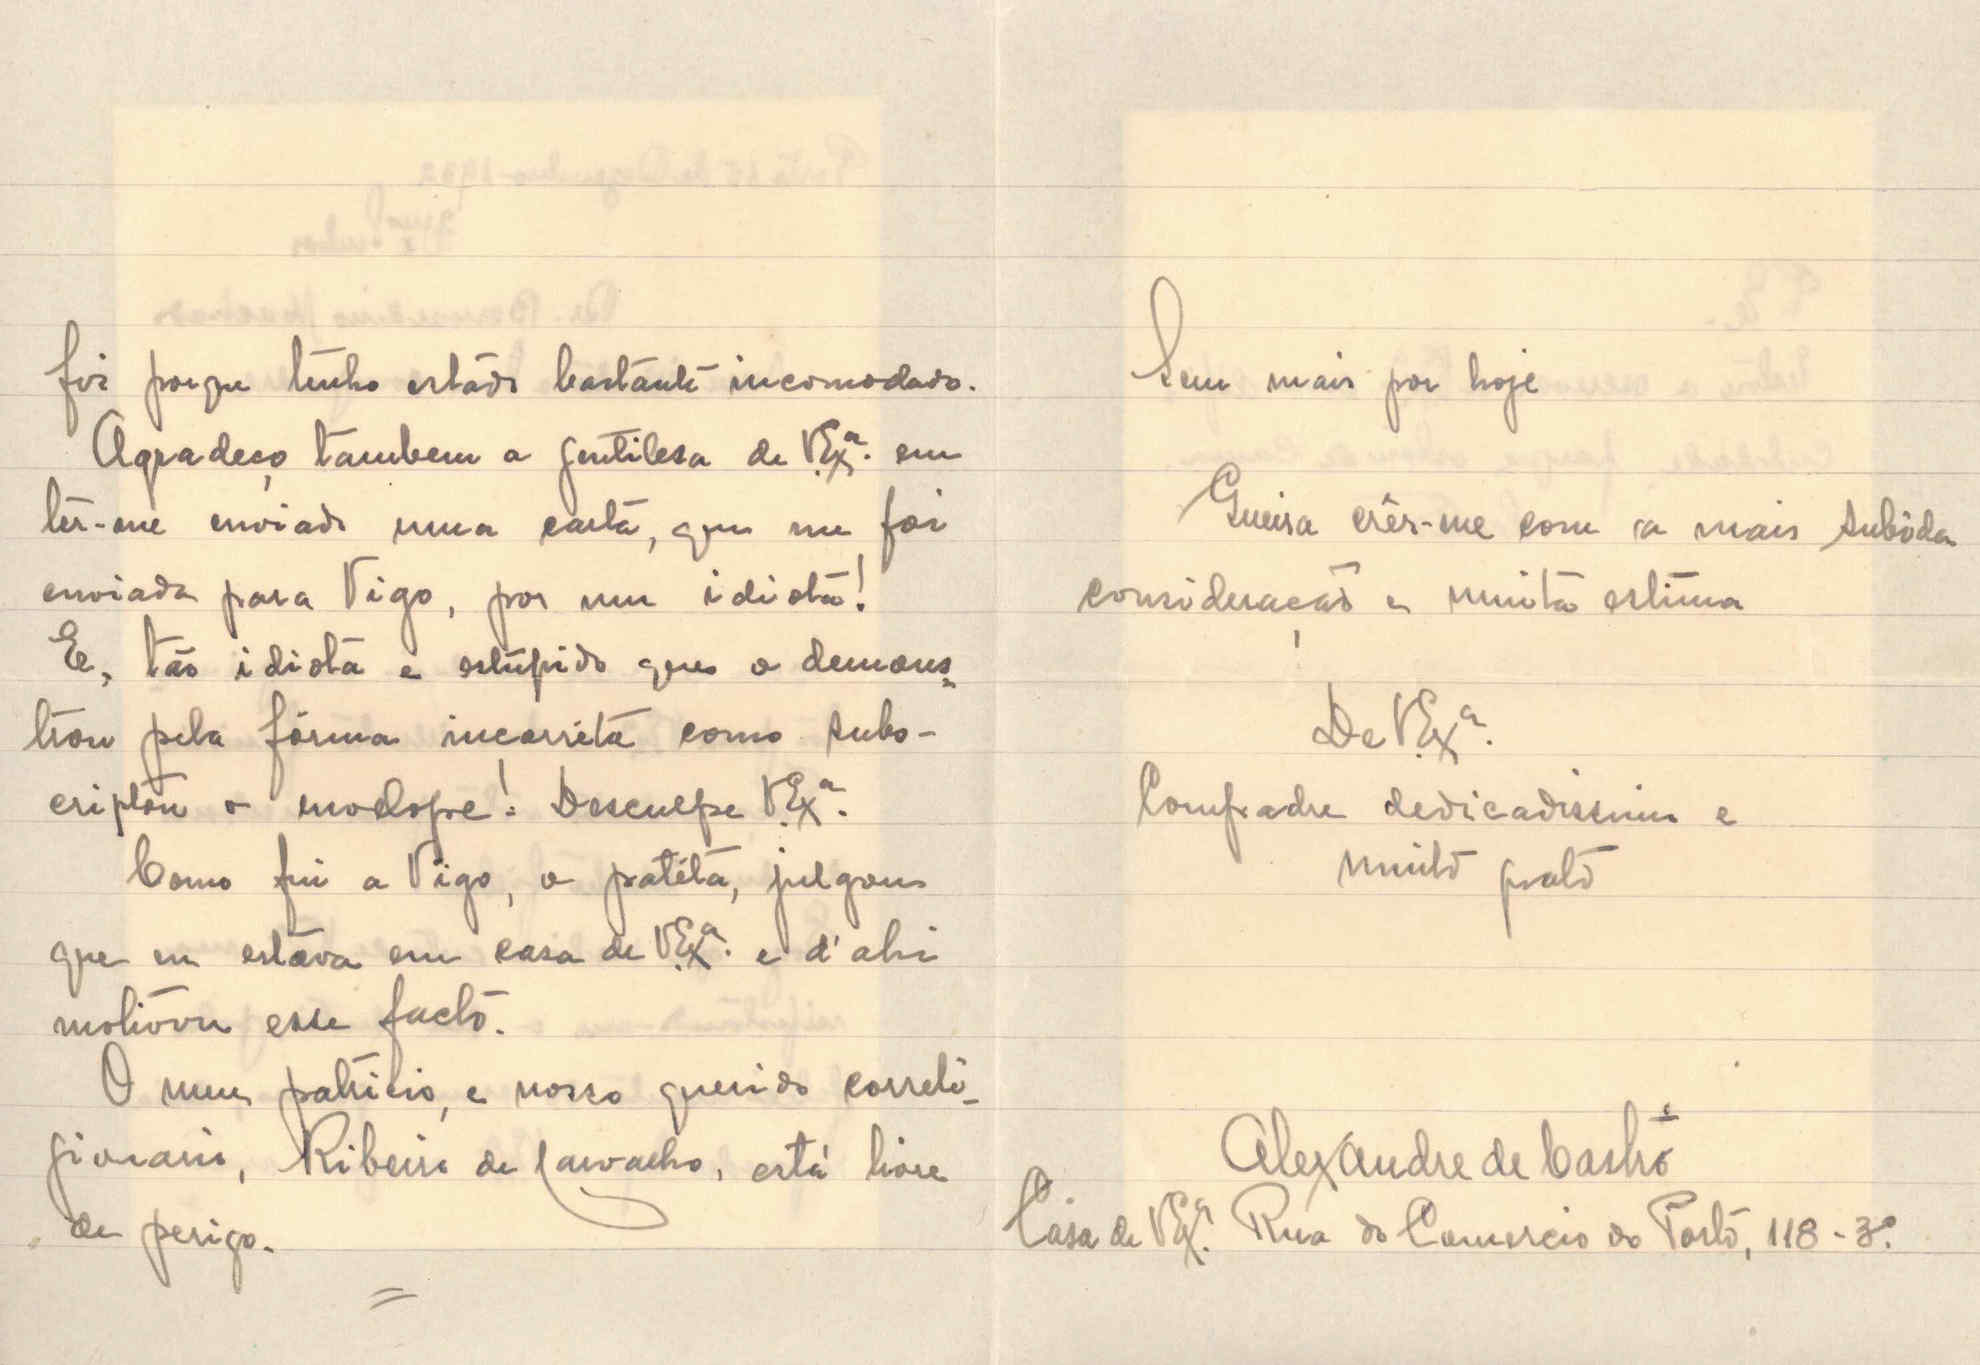 foi porque tenho estado bastante incomodado.
Agradeço tambem a gentilesa de V. Exª. em
ter-me enviado uma carta, que me foi
enviada para Vigo, por um idiota!
E, tão idiota e estupido que o demons-
trou pela fórma incorréta como subs-
criptou o envelope! Desculpe V. Exª.
Como fui a Vigo, o patéta, julgou
que eu estava em casa de V. Exª. e d'ahi
motivou esse facto.
O meu patricio, e nosso querido correli-
gionario, Ribeiro de Carvalho, está livre
de perigo.
Sem mais por hoje
Queira crêr-me com a mais subida
consideração e muita estima
De V. Exª.
Confrade dedicadissimo e
muito grato
Alexandre de Castro
Casa de V. Exª. Rua do Comercio do Porto, 118-3º.